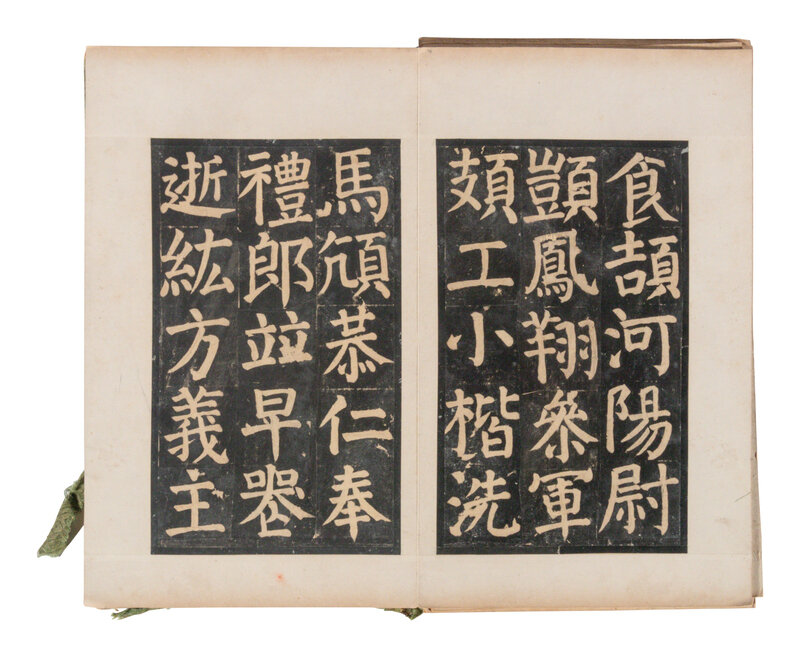 食頡河陽尉
顗鳳翔叅軍
頍工小楷洗
馬頏恭仁奉
禮郎竝早噐
逝紘方義主